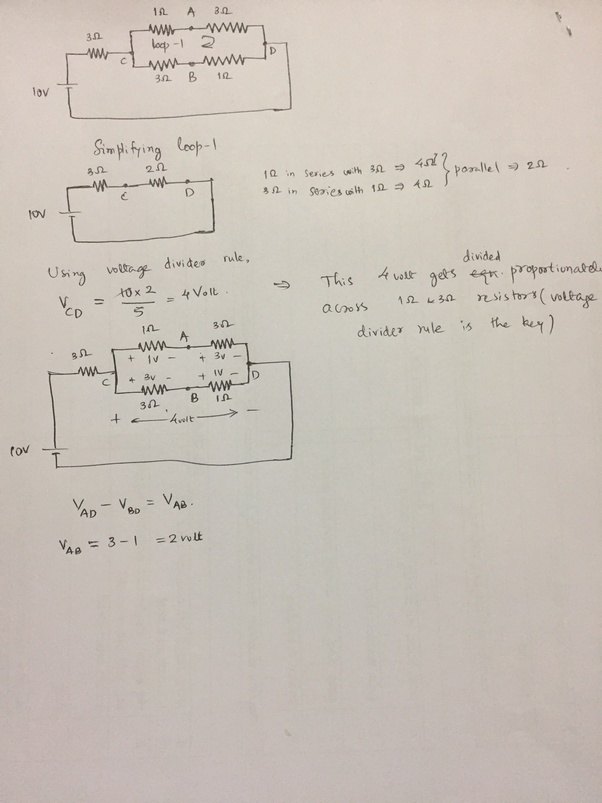 1Ω A 3Ω
3Ω loop-1 2
C D
3Ω B 1Ω
10V
Simplifying loop-1
3Ω 2Ω
C D
10V
1Ω in series with 3Ω ⇒ 4Ω
3Ω in series with 1Ω ⇒ 4Ω
} parallel ⇒ 2Ω.
Using voltage divider rule,
V_CD = 10 x 2 / 5 = 4 Volt.
⇒ This 4 volt gets divided proportionately
across 1Ω & 3Ω resistors (voltage
divider rule is the key)
1Ω A 3Ω
+ 1V - + 3V -
3Ω C + 3V - + 1V - D
3Ω B 1Ω
+ ← 4volt → -
10V
V_AD - V_BD = V_AB.
V_AB = 3 - 1 = 2 volt